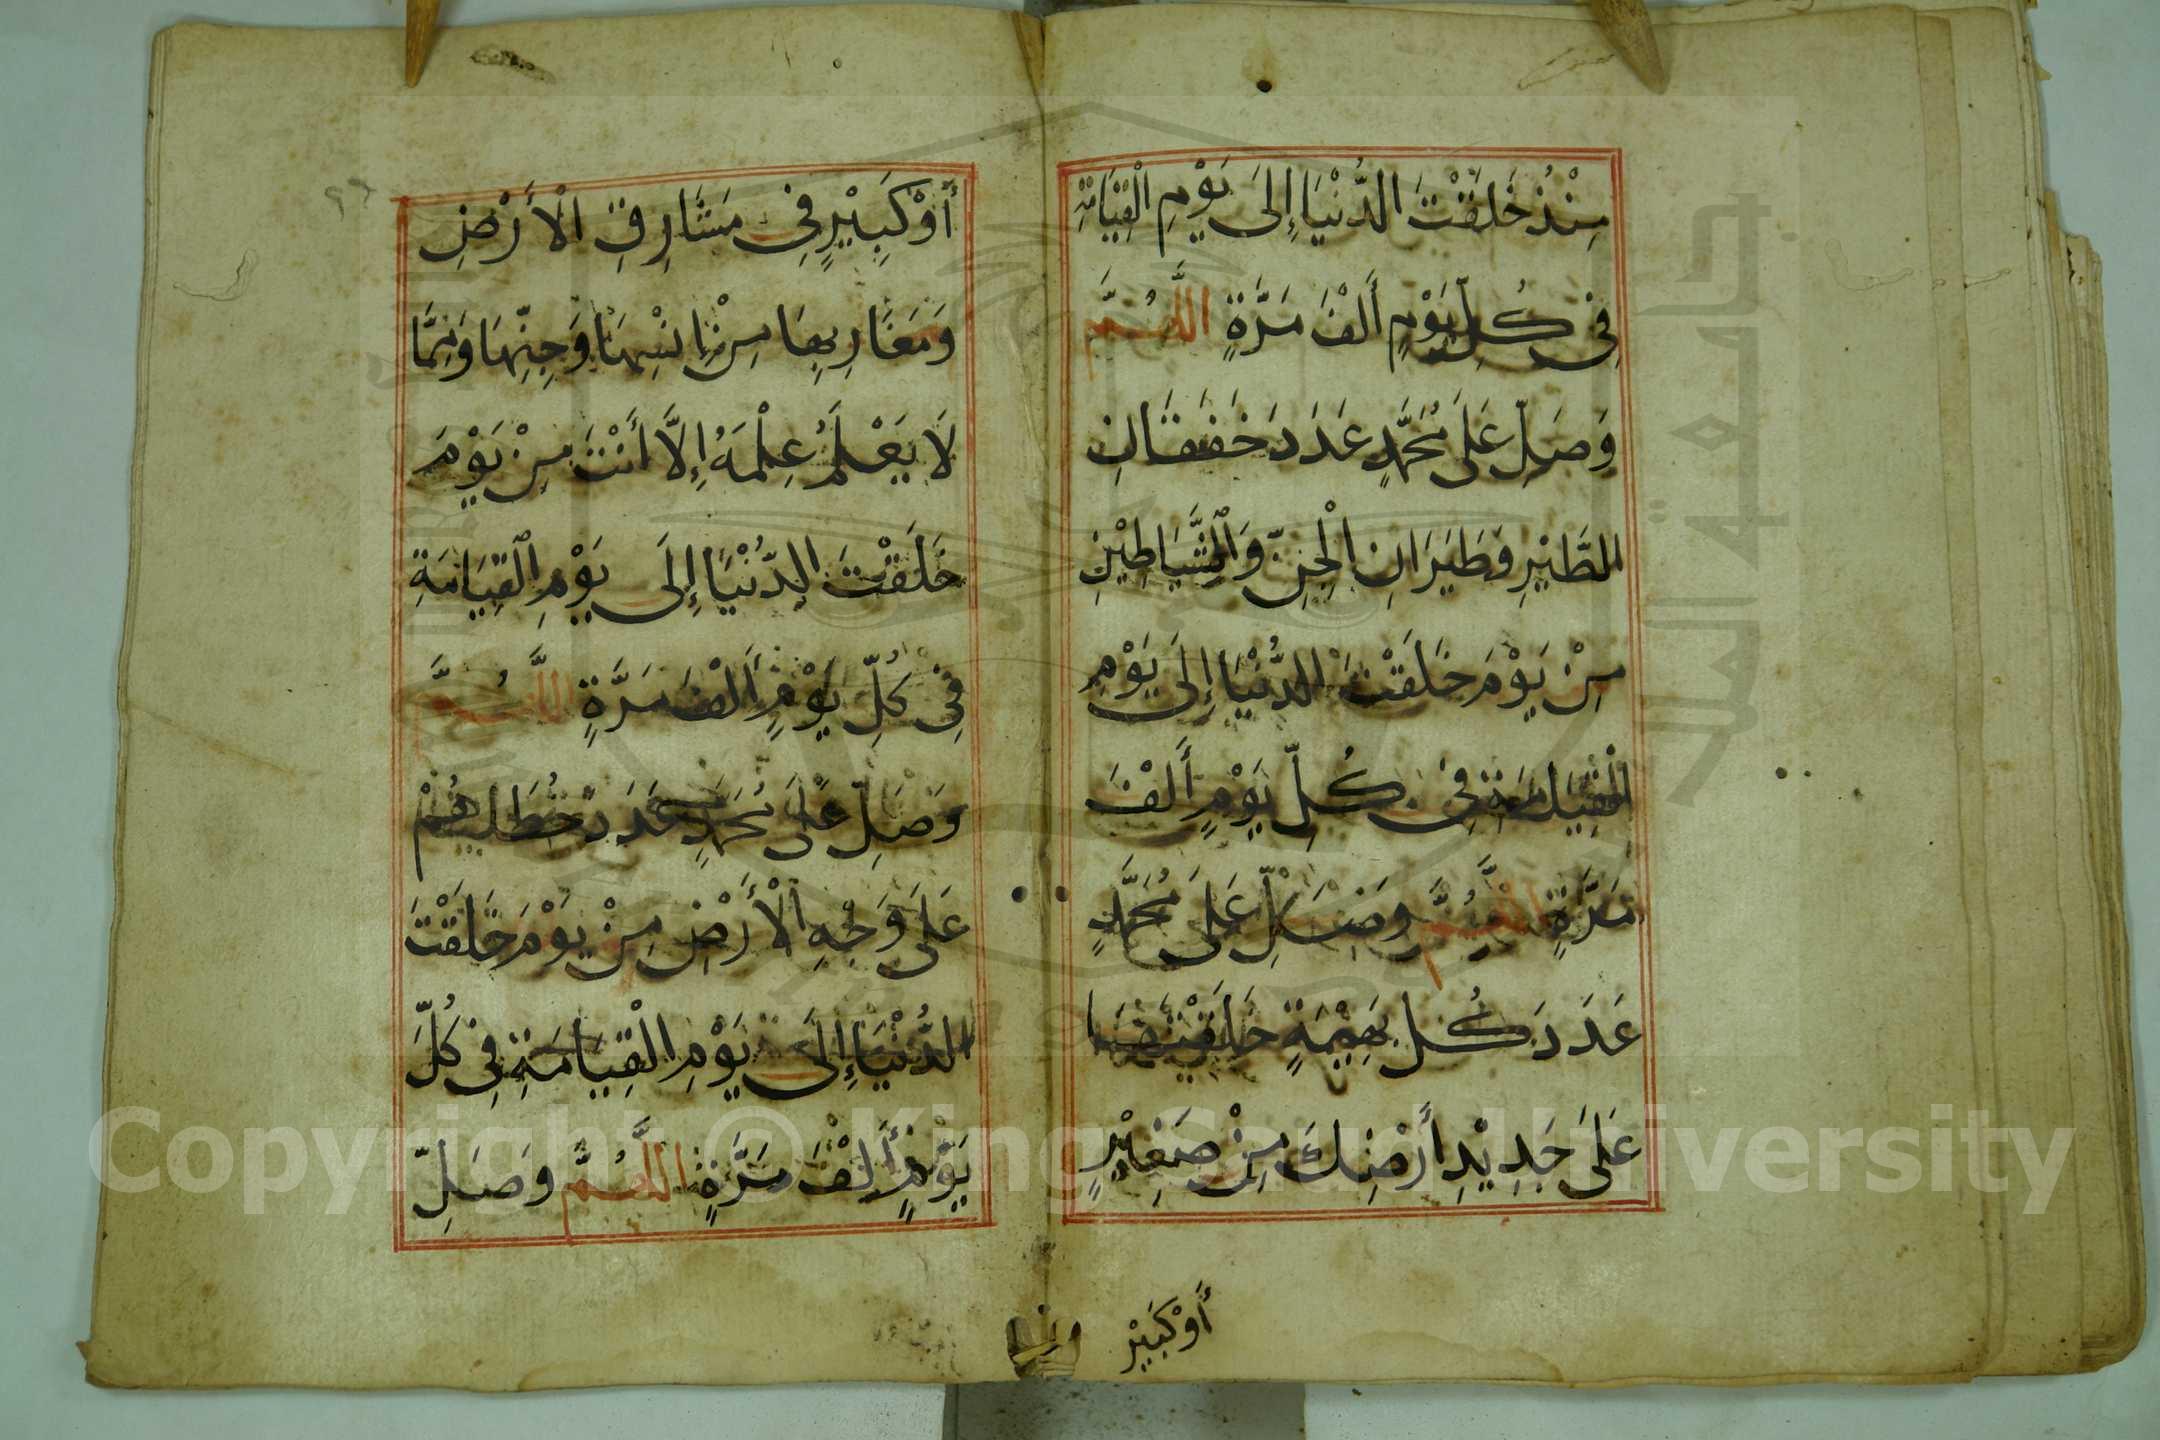 مِنْذُ خَلَقْتَ الدُّنْيَا إِلَى يَوْمِ الْقِيَامَةِ
فِي كُلِّ يَوْمٍ أَلْفَ مَرَّةٍ اللَّهُمَّ
وَصَلِّ عَلَى مُحَمَّدٍ عَدَدَ خَفَقَانِ
الطَّيْرِ وَطَيَرَانِ الْجِنِّ وَالشَّيَاطِيْنِ
مِنْ يَوْمَ خَلَقْتَ الدُّنْيَا إِلَى يَوْمِ
الْقِيَامَةِ فِي كُلِّ يَوْمٍ أَلْفَ
مَرَّةٍ اللَّهُمَّ وَصَلِّ عَلَى مُحَمَّدٍ
عَدَدَ كُلِّ بَهِيْمَةٍ خَلَقْتَهَا
عَلَى جَدِيْدِ أَرْضِكَ مِنْ صَغِيْرٍ
أَوْ كَبِيْرٍ
أَوْ كَبِيْرٍ فِي مَشَارِقِ الْأَرْضِ
وَمَغَارِبِهَا مِنْ إِنْسِهَا وَجِنِّهَا وَمِمَّا
لَا يَعْلَمُ عِلْمَهُ إِلَّا أَنْتَ مِنْ يَوْمَ
خَلَقْتَ الدُّنْيَا إِلَى يَوْمِ الْقِيَامَةِ
فِي كُلِّ يَوْمٍ أَلْفَ مَرَّةٍ اللَّهُمَّ
وَصَلِّ عَلَى مُحَمَّدٍ عَدَدَ خُطَاهُمْ
عَلَى وَجْهِ الْأَرْضِ مِنْ يَوْمَ خَلَقْتَ
الدُّنْيَا إِلَى يَوْمِ الْقِيَامَةِ فِي كُلِّ
يَوْمٍ أَلْفَ مَرَّةٍ اللَّهُمَّ وَصَلِّ
Copyright © King Saud University